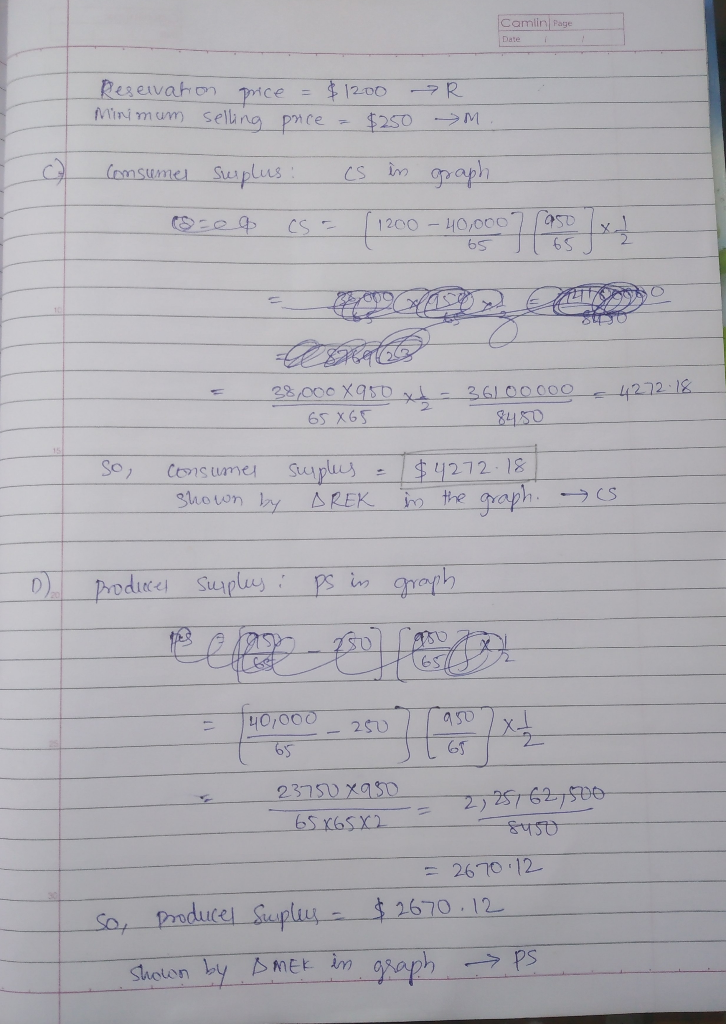 Camlin Page
Date / /
Reservation price = $1200 → R
Minimum selling price = $250 → M.
C) Consumer surplus: CS in graph
CS = [1200 - 40,000/65] [950/65] × 1/2
= 38,000 × 950 / 65 × 65 × 1/2 = 36100000 / 8450 = 4272.18
So, consumer surplus = $4272.18
Shown by △REK in the graph. → CS
D) Producer surplus: PS in graph
= [40,000/65 - 250] [950/65] × 1/2
= 23750 × 950 / 65×65×2 = 2,25,62,500 / 8450
= 2670.12
So, Producer Surplus = $2670.12
Shown by △MEK in graph → PS